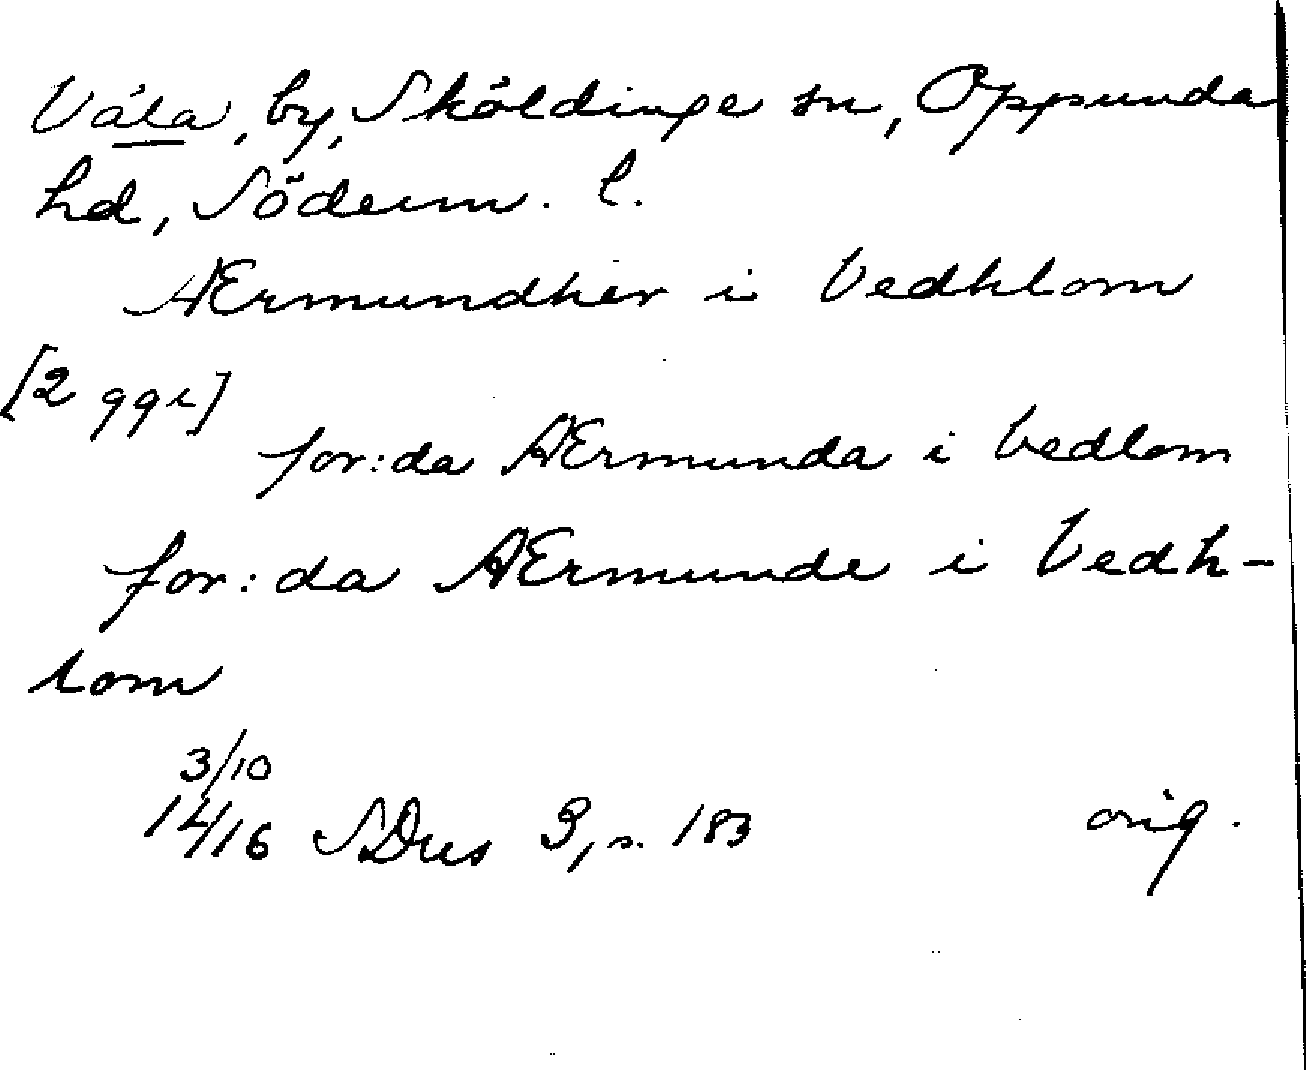 Våla, by, Sköldinge sn, Oppunda
hd, Söderm. l.
Ærmundher i Vedhlom
[2 ggr]
for:da Ærmunda i Vedlom
for:da Ærmunde i Vedh-
lom
3/10
1416 SDns 3, s. 183 orig.